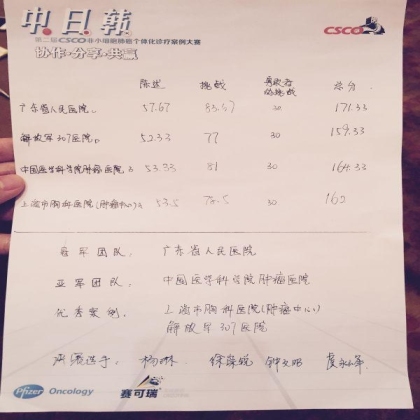 中日韩
CSCO
第二届CSCO非小细胞肺癌个体化诊疗案例大赛
协作·分享·共赢
陈述 挑战 总分
广东省人民医院 57.67 83.67 30 171.33
解放军307医院 52.33 77 30 159.33
中国医学科学院肿瘤医院 53.33 81 30 164.33
上海市胸科医院(肿瘤中心) 53.5 30 162
冠军团队: 广东省人民医院
亚军团队: 中国医学科学院肿瘤医院
优秀案例: 上海市胸科医院(肿瘤中心)
解放军307医院
杨琳 钟文昭
Pfizer Oncology 赛可瑞